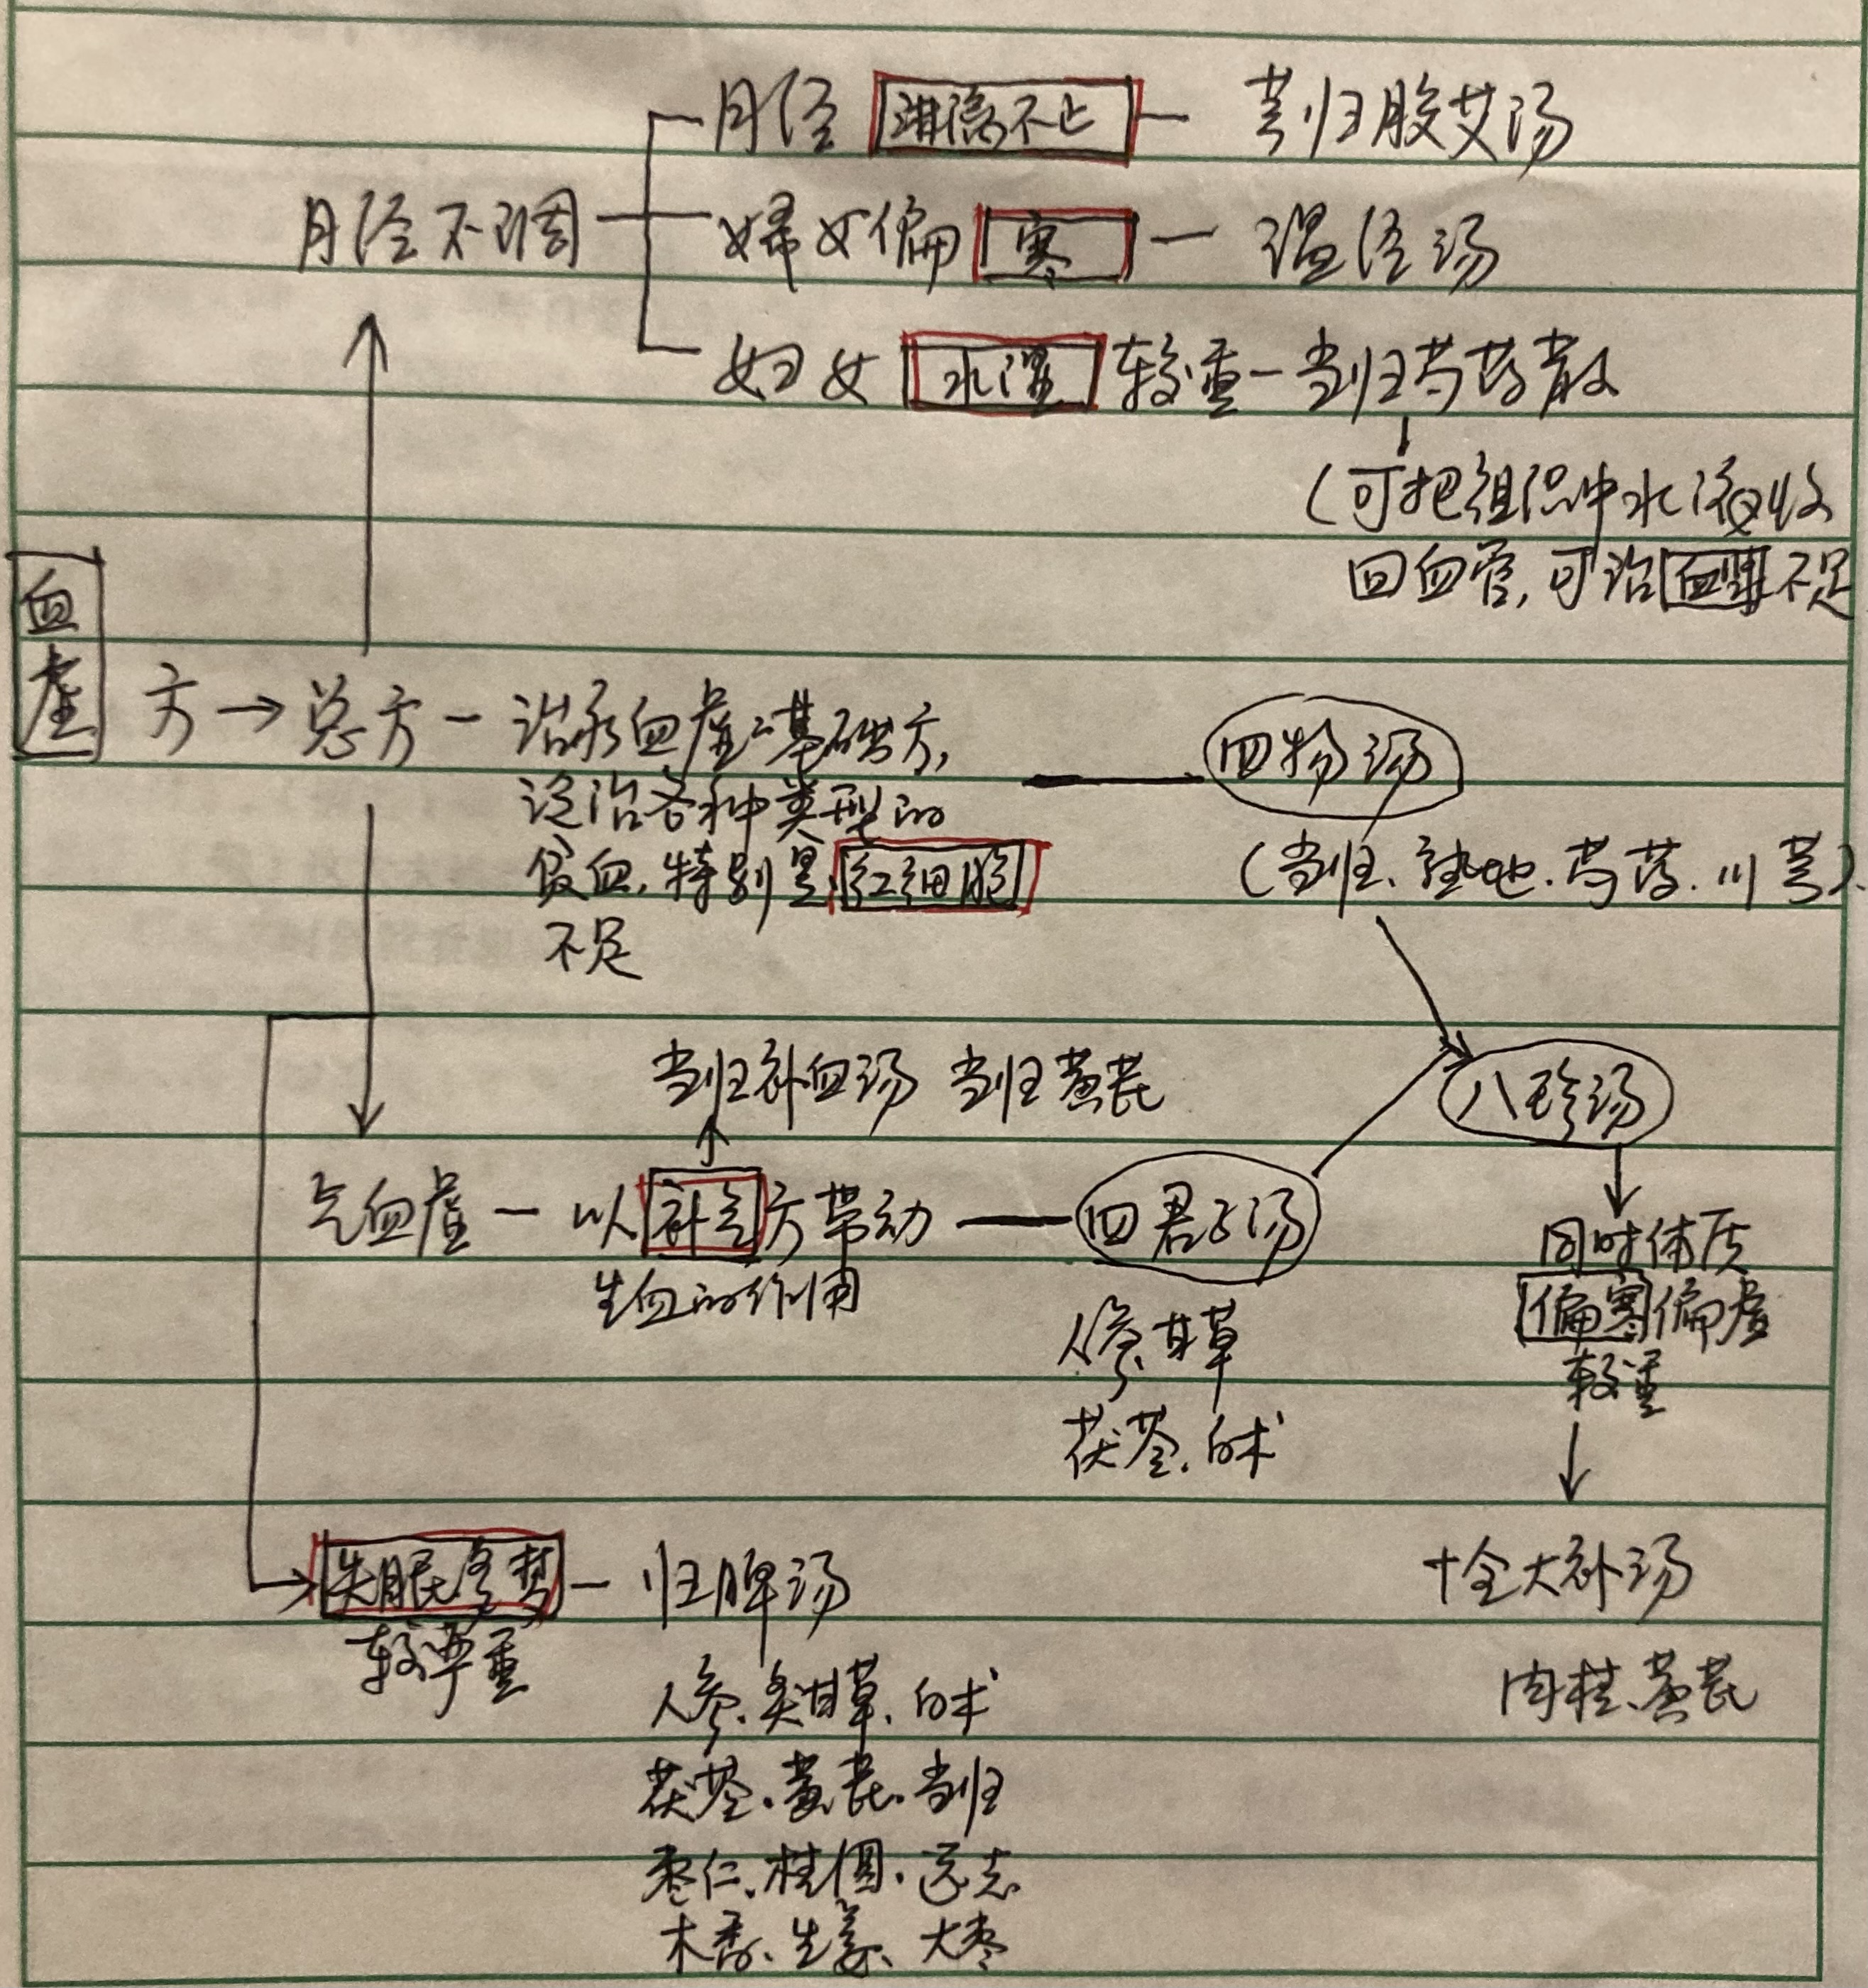 月经淋漓不止 — 芎归胶艾汤
月经不调
婦女偏寒 — 温经汤
妇女水湿较重 — 当归芍药散
(可把组织中水液收
回血管,可治血虚不足
血虚
方→总方 — 治疗血虚之基础方,
四物汤
泛治各种类型的
贫血,特别是红细胞
(当归、熟地、芍药、川芎)
不足
当归补血汤 当归黄芪
八珍汤
气血虚 — 以补气方带动
四君子汤
生血的作用
同时体质
偏寒偏虚
较重
人参、甘草
茯苓、白术
失眠多梦 — 归脾汤
较严重
十全大补汤
人参、炙甘草、白术
肉桂、黄芪
茯苓、黄芪、当归
枣仁、桂圆、远志
木香、生姜、大枣